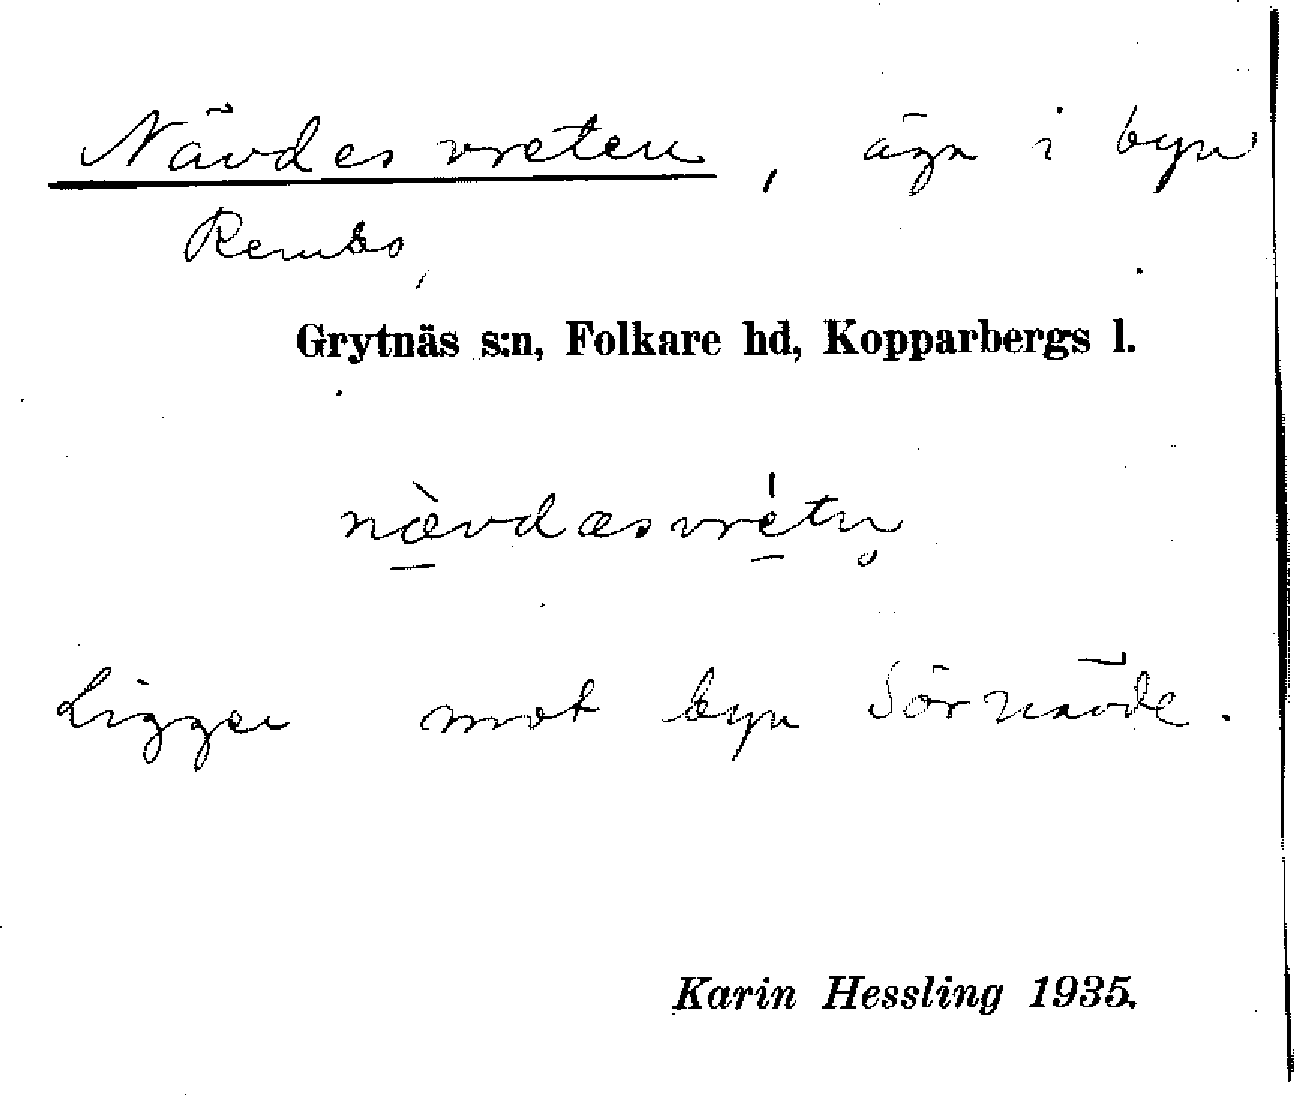 Nävdesvreten, äga i byn
Rembo,
Grytnäs s:n, Folkare hd, Kopparbergs l.
nævdæsvrétn̥
Ligger mot byn Sörnävde.
Karin Hessling 1935.